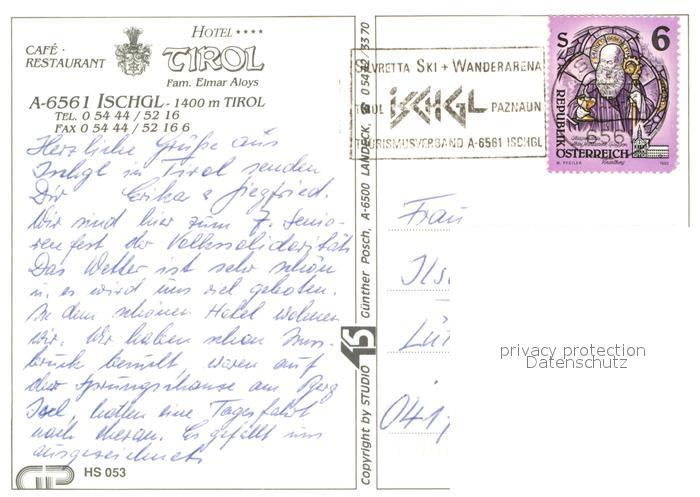 HOTEL ****
CAFÉ · RESTAURANT
TIROL
Fam. Elmar Aloys
A-6561 ISCHGL - 1400 m TIROL
TEL. 0 54 44 / 52 16
FAX 0 54 44 / 52 16 6
Herzliche Grüße aus
Ischgl in Tirol senden
Dir Erika & Siegfried.
Wir sind hier zum 7. Senio-
renfest der Volkssolidarität
Das Wetter ist sehr schön
u. es wird uns viel geboten.
In dem schönen Hotel wohnen
wir. Wir haben schon Inns-
bruck besucht, waren auf
der Sprungschanze am Berg
Isel, hatten eine Tagesfahrt
nach Meran. Es gefällt uns
ausgezeichnet
HS 053
Copyright by STUDIO 15 Günther Posch, A-6500 LANDECK,
SILVRETTA SKI + WANDERARENA
TIROL ISCHGL PAZNAUN
TOURISMUSVERBAND A-6561 ISCHGL
S 6
REPUBLIK
ÖSTERREICH
6561
Frau
Ils
Lü
041
privacy protection
Datenschutz